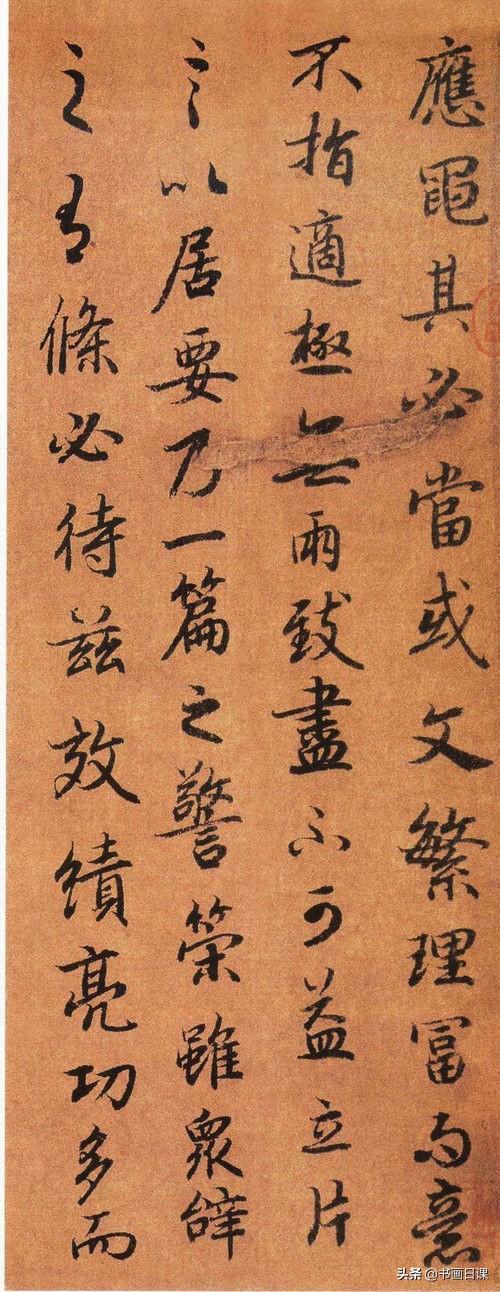 應黽其必當或文繁理富而意
不指適極無兩致盡不可益立片
言以居要乃一篇之警策雖眾辭
之有條必待茲效績亮功多而
头条 @书画日课